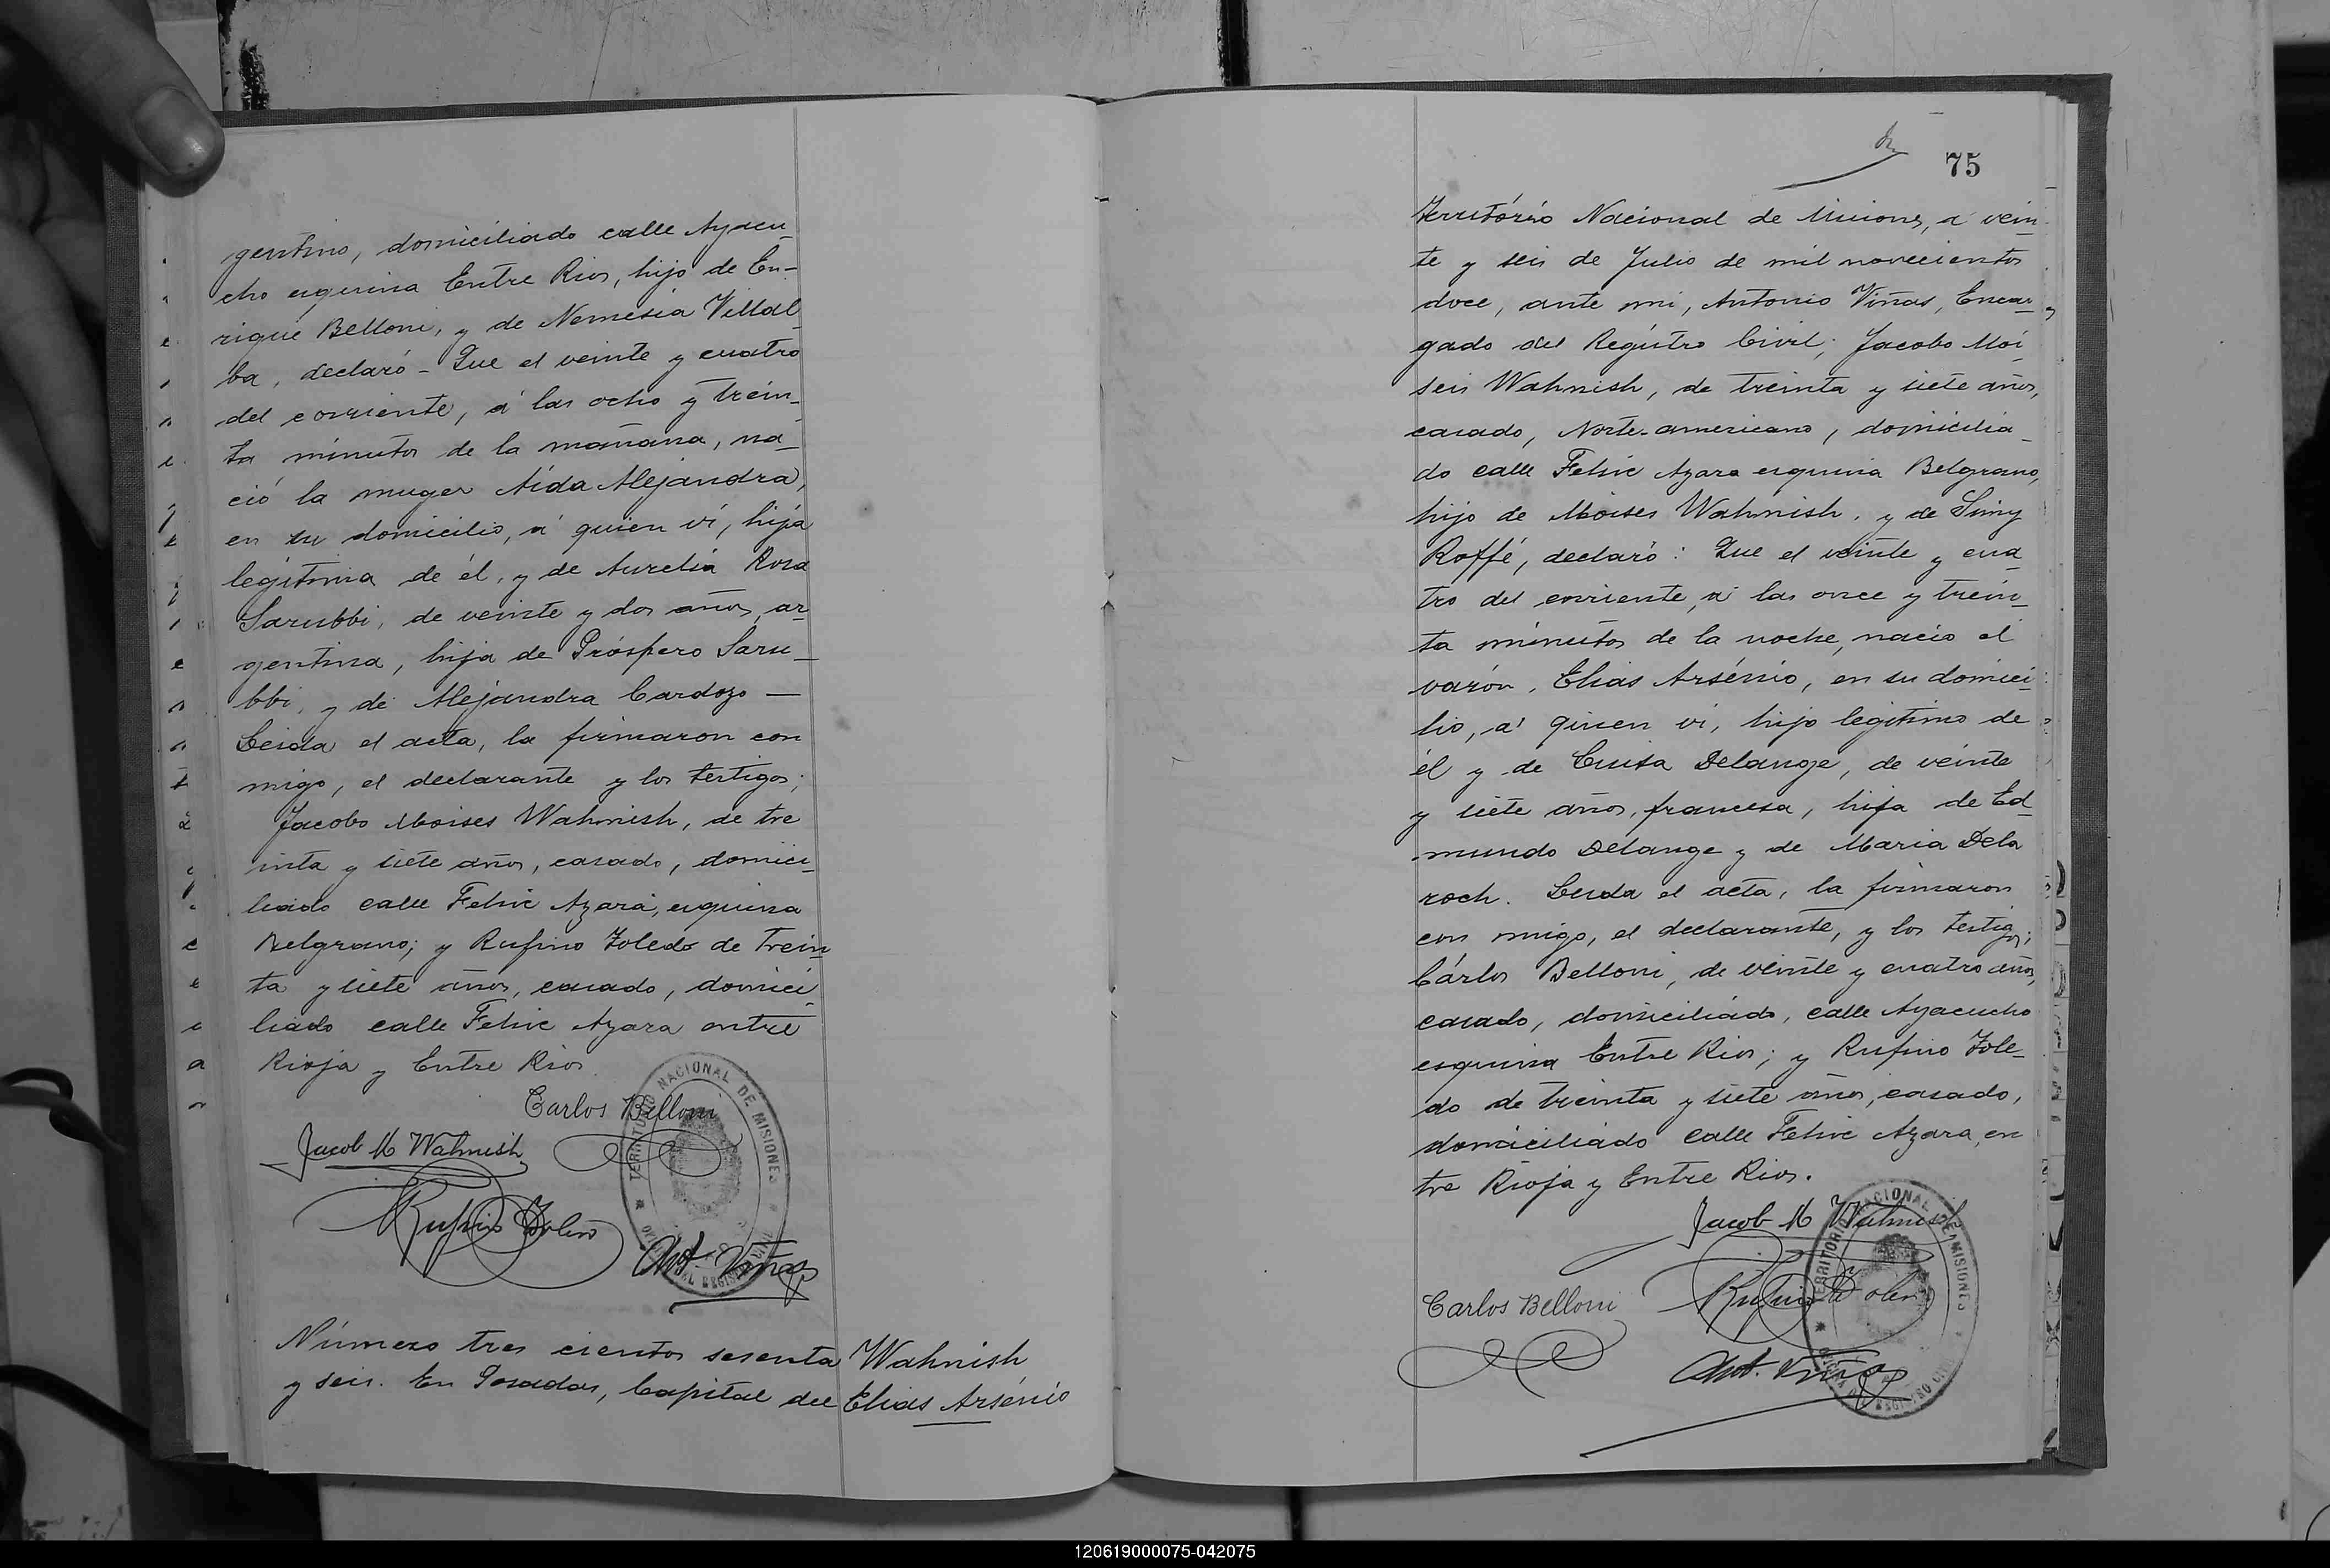 gentino, domiciliado calle Ayacu-
cho esquina Entre Rios, hijo de En-
rique Belloni, y de Nemesia Villal-
ba, declaró - Que el veinte y cuatro
del corriente, á las ocho y trein-
ta minutos de la mañana, na-
ció la muger Aída Alejandra,
en su domicilio, á quien ví, hija
legítima de él, y de Aurelia Rosa
Sarubbi, de veinte y dos años, ar-
gentina, hija de Próspero Saru-
bbi, y de Alejandra Cardozo —
Leida el acta, la firmaron con
migo, el declarante y los testigos;
Jacobo Moises Wahnish, de tre
inta y siete años, casado, domici-
liado calle Felix Azara, esquina
Belgrano; y Rufino Toledo de trein-
ta y siete años, casado, domici-
liado calle Felix Azara entre
Rioja y Entre Rios.
Carlos Belloni
Jacob M Wahnish
Rufino Toledo
Ant. Viñas
TERRITORIO NACIONAL DE MISIONES
Número tres cientos sesenta
y seis. En Posadas, Capital del
Wahnish
Elias Arsénio
75
Território Nacional de Misiones, á vein-
te y seis de Julio de mil novecientos
doce, ante mi, Antonio Viñas, Encar-
gado del Registro Civil; Jacobo Moi-
seis Wahnish, de treinta y siete años,
casado, Norte-americano, domicilia-
do calle Felix Azara esquina Belgrano,
hijo de Moises Wahnish, y de Simy
Roffé, declaró: Que el veinte y cua-
tro del corriente, á las once y trein-
ta minutos de la noche, nacio el
varón, Elias Arsénio, en su domici-
lio, á quien ví, hijo legítimo de
él y de Luisa Delange, de veinte
y siete años, francesa, hija de Ed-
mundo Delange y de Maria Dela
roch. Leida el acta, la firmaron
con migo, el declarante, y los testigos;
Cárlos Belloni, de veinte y cuatro años,
casado, domiciliado, calle Ayacucho
esquina Entre Rios; y Rufino Tole-
do de treinta y siete años, casado,
domiciliado calle Felix Azara, en
tre Rioja y Entre Rios.
Jacob M Wahnish
Carlos Belloni
Rufino Toledo
Ant. Viñas
TERRITORIO NACIONAL DE MISIONES
120619000075-042075